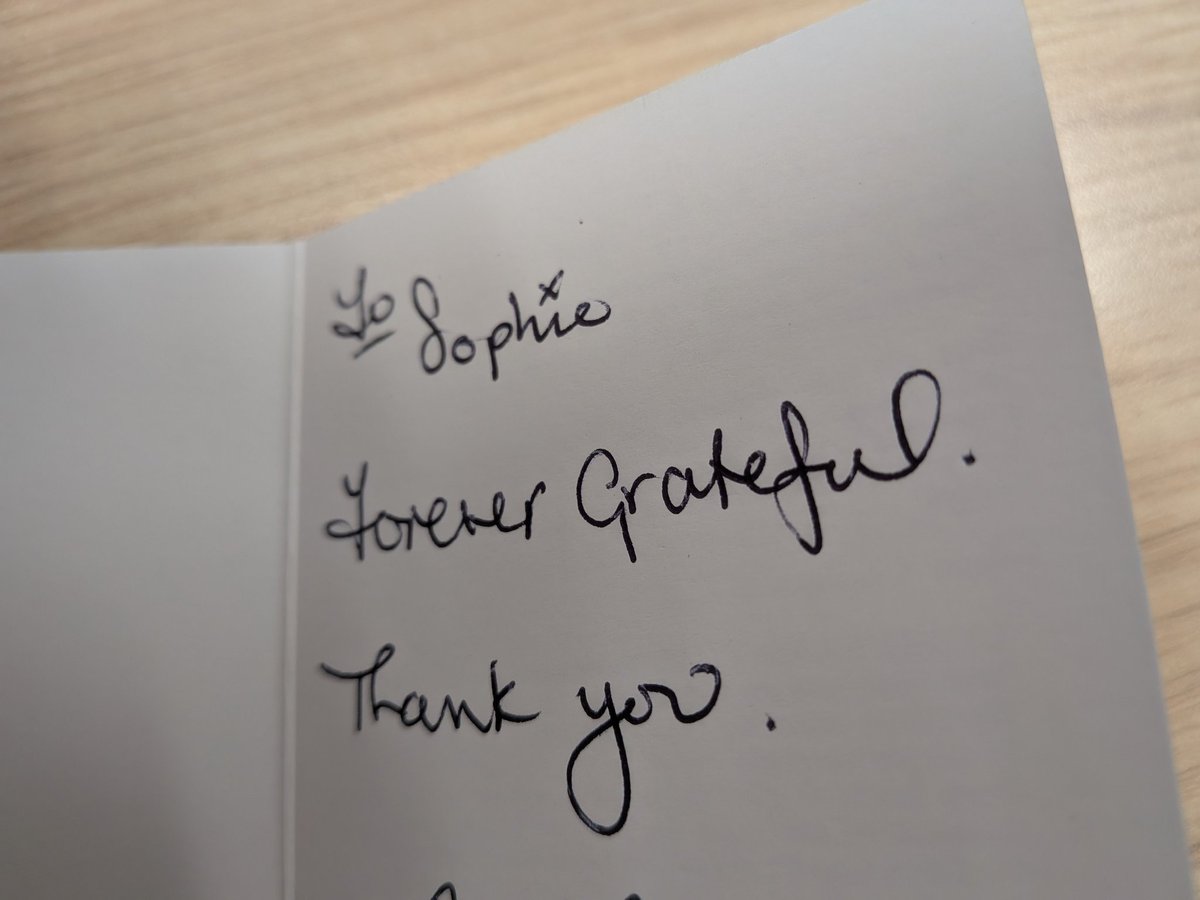 To Sophie
Forever Grateful.
Thank you.